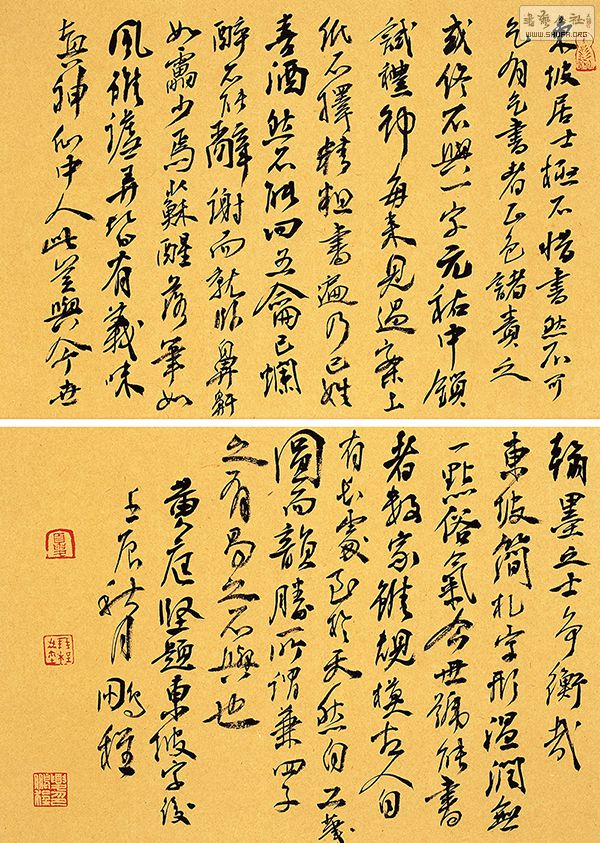 東坡居士極不惜書然不可
乞有乞書者正色諸責之
或終不與一字元祐中鎖
試禮部每来見過案上
紙不擇精粗書遍乃已姓
喜酒然不能四五龠已爛
醉不能辭謝而就臥鼻鼾
如雷少焉蘇醒落筆如
風雖謔弄皆有義味
真神仙中人此豈與今世
翰墨之士爭衡哉
東坡簡札字形溫潤無
一點俗氣今世號能書
者數家雖規模古人自
有長處至於天然自工筆
圓而韻勝所謂兼四子
之有易之不與也
黄庭堅題東坡字後
壬辰秋月鵬程
WWW.SHUFA.ORG